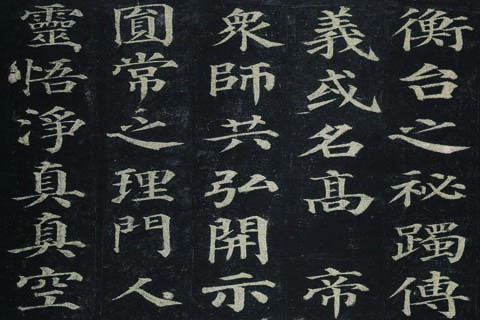 衡台之秘躅傳
義或名高 帝
衆師共弘開示
圓常之理門人
靈悟淨真真空